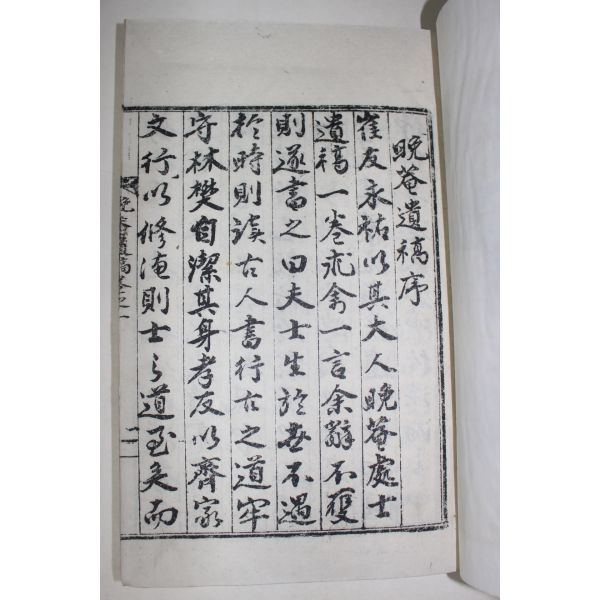 晩菴遺稿序
崔友永祐以其大人晩菴處士
遺稿一卷一言余辭不獲
則遂書之曰夫士生於世不遇
於時則讀古人書行古之道牢
守林樊自潔其身孝友以齊家
文行以修則士之道至矣而
晩菴遺稿卷之一
一